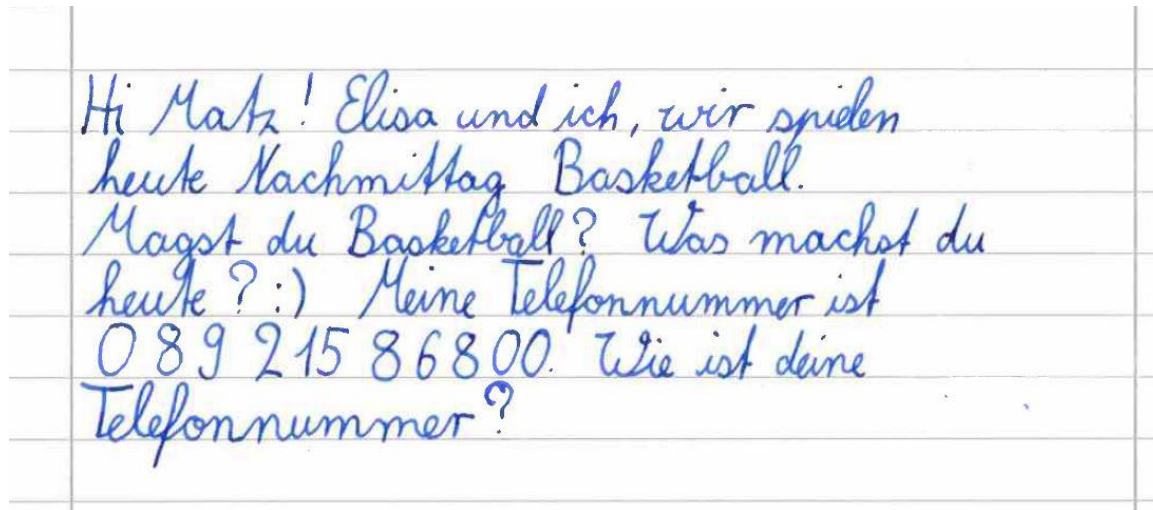 Hi Matz! Elisa und ich, wir spielen
heute Nachmittag Basketball.
Magst du Basketball? Was machst du
heute? :) Meine Telefonnummer ist
089 215 86800. Wie ist deine
Telefonnummer?